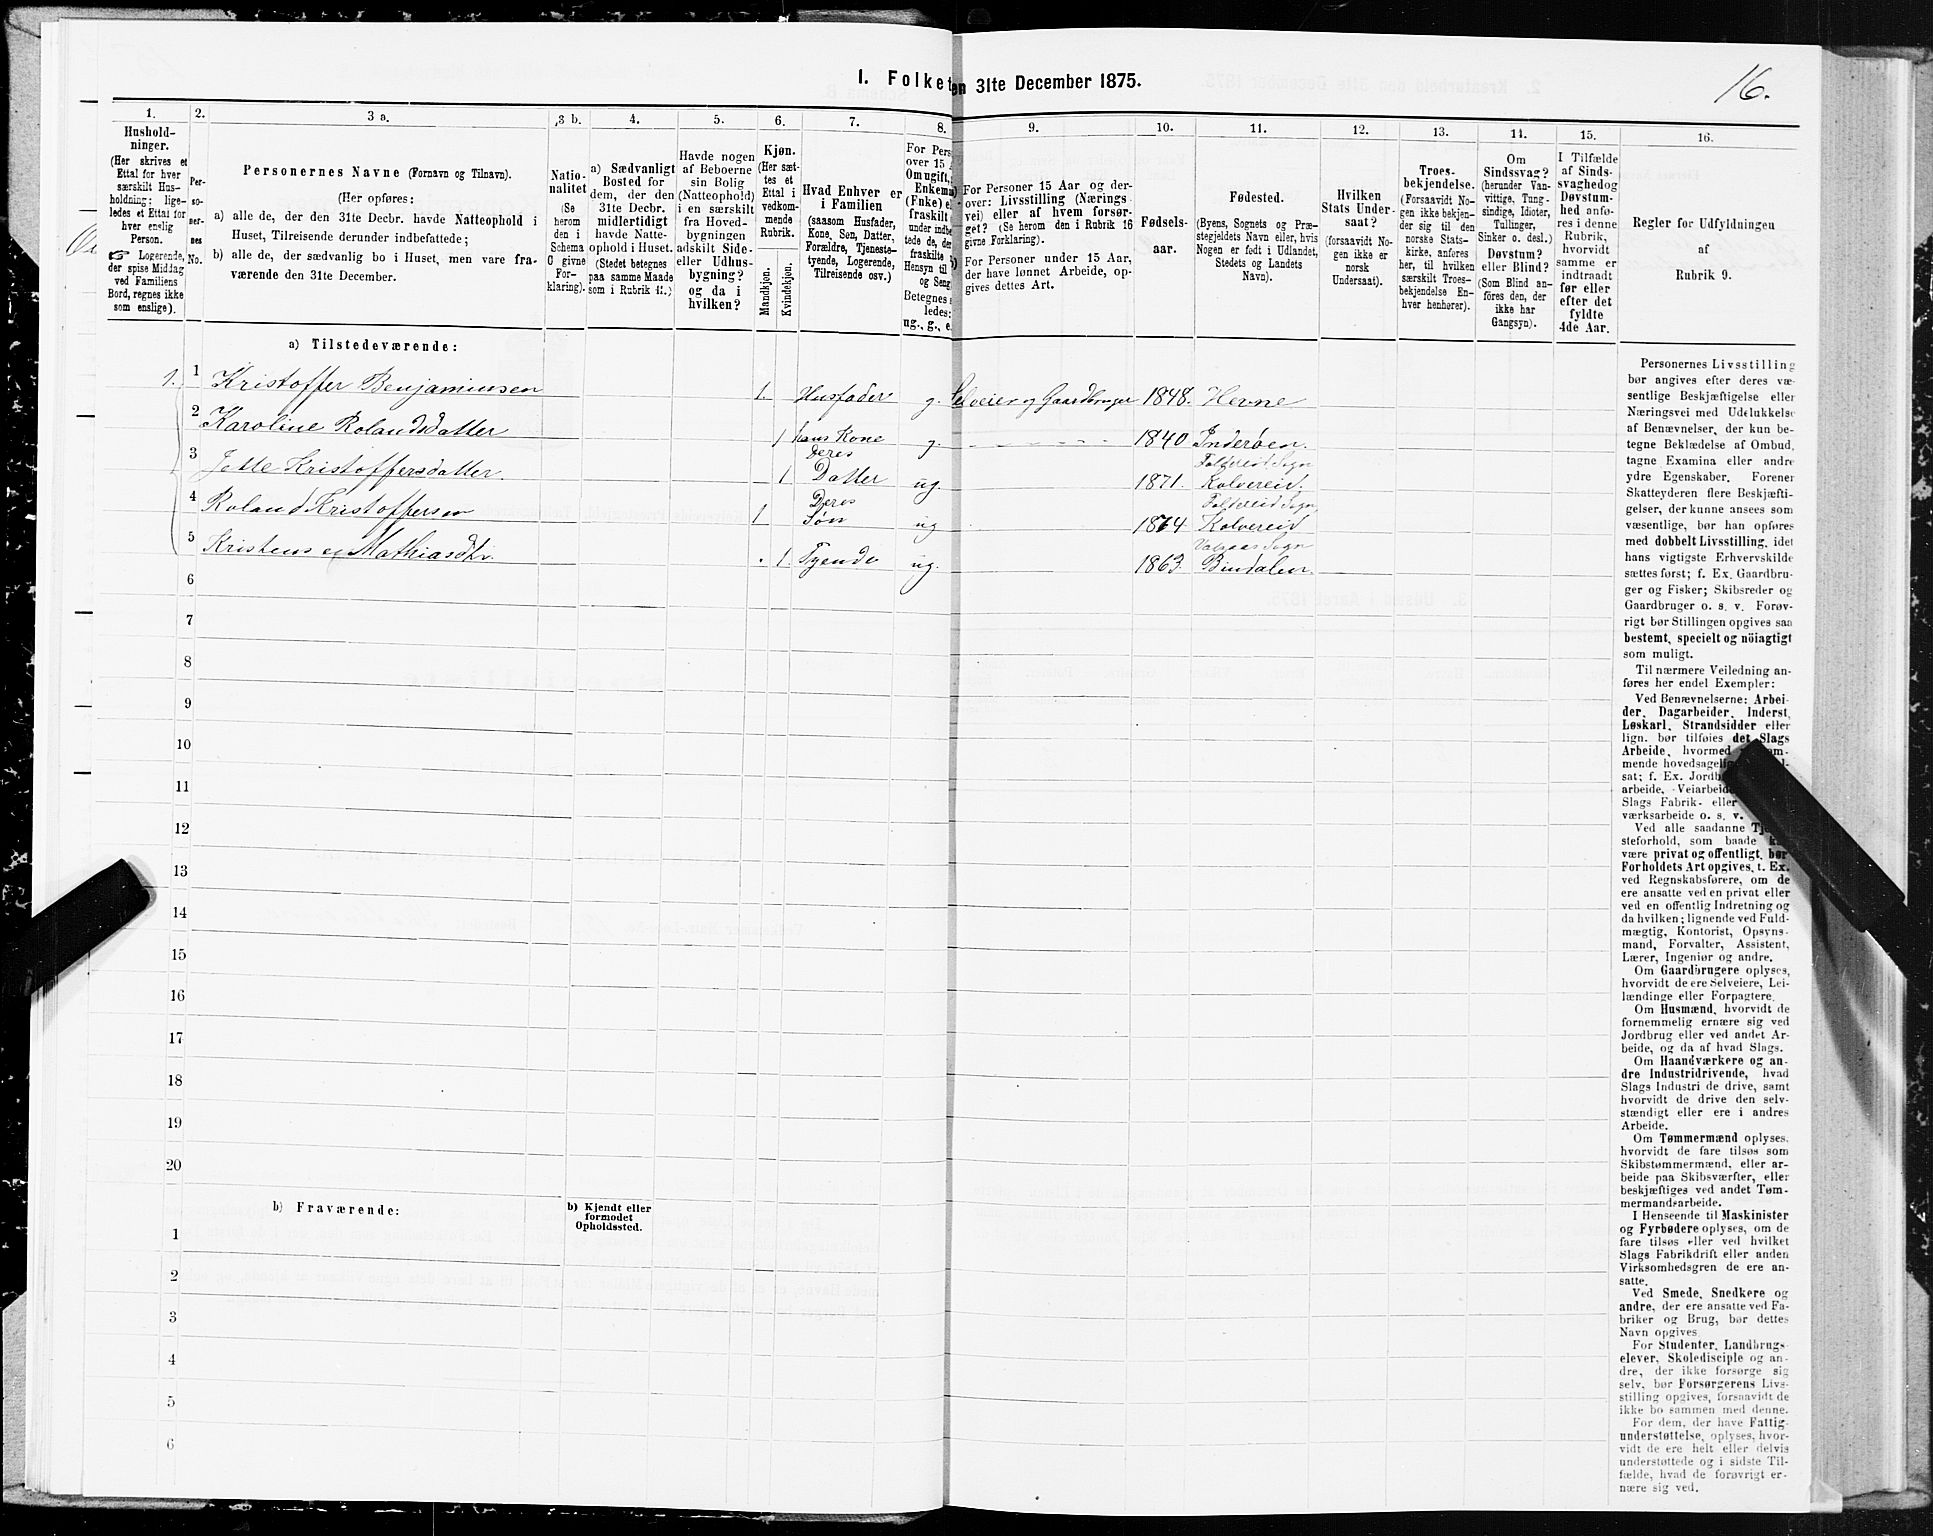 I. Folket en 31te December 1875.
16.
1.
Hushold-
ninger.
(Her skrives et
Ettal for hver
særskilt Hus-
holdning; lige-
ledes et Ettal for
hver enslig
Person.
☞ Logerende,
der spise Middag
ved Familiens
Bord, regnes ikke
som enslige).
2.
Per-
so-
ner-
nes
No.
3 a.
Personernes Navne (Fornavn og Tilnavn).
(Her opføres:
a) alle de, der den 31te Decbr. havde Natteophold i
Huset, Tilreisende derunder indbefattede;
b) alle de, der sædvanlig bo i Huset, men vare fra-
værende den 31te December.
3 b.
Natio-
nalitet
(Se
herom
den i
Schema
C givne
For-
klaring).
4.
a) Sædvanligt
Bosted for
dem, der den
31te Decbr.
midlertidigt
havde Natte-
ophold i Huset.
(Stedet betegnes
paa samme Maade
som i Rubrik 11.)
5.
Havde nogen
af Beboerne
sin Bolig
(Natteophold)
i en særskilt
fra Hoved-
bygningen
adskilt Side-
eller Udhus-
bygning?
og da i
hvilken?
6.
Kjøn.
(Her sæt-
tes et
Ettal i
vedkom-
mende
Rubrik.
Mandkjøn.
Kvindekjøn.
7.
Hvad Enhver er
i Familien
(saasom Husfader,
Kone, Søn, Datter,
Forældre, Tjeneste-
tyende, Logerende,
Tilreisende osv.)
8.
For Pers
over 15
Om ugift,
Enkema
(Fnke) el
fraskilt
under indbe
tede de, der
fraskilte
Hensyn til
og Seng
Betegnes
ledes:
ug., g., e.
9.
For Personer 15 Aar og der-
over: Livsstilling (Nærings-
vei) eller af hvem forsør-
get? (Se herom den i Rubrik 16
givne Forklaring).
For Personer under 15 Aar,
der have lønnet Arbeide, op-
gives dettes Art.
10.
Fødsels-
aar.
11.
Fødested.
(Byens, Sognets og Præ-
stegjeldets Navn eller, hvis
Nogen er født i Udlandet,
Stedets og Landets
Navn).
12.
Hvilken
Stats Under-
saat?
(forsaavidt No-
gen ikke er
norsk
Undersaat).
13.
Troes-
bekjendelse.
(Forsaavidt No-
gen ikke bekjen-
der sig til den
norske Stats-
kirke, anføres
her, til hvilken
særskilt Troes-
bekjendelse En-
hver henhører).
14.
Om
Sindssvag?
(herunder Van-
vittige, Tung-
sindige, Idioter,
Tullinger,
Sinker o. desl.)
Døvstum?
eller Blind?
(Som Blind an-
føres den, der
ikke har
Gangsyn).
15.
I Tilfælde
af Sinds-
svaghed og
Døvstum-
hed anfø-
res i denne
Rubrik,
hvorvidt
samme er
indtraadt
før eller
efter det
fyldte
4de Aar.
16.
Regler for Udfyldningen
af
Rubrik 9.
a) Tilstedeværende:
1. 1 Kristoffer Benjaminsen 1. Husfader g. Selveier og Gaardbruger 1848. Hevne
2 Karoline Rolandsdatter 1 hans Kone g. 1840 Inderøen.
3 Jette Kristoffersdatter. 1 Deres Datter ug. 1871. Foldereid Sogn Kolvereid.
4 Roland Kristoffersen 1 Deres Søn ug 1874 Foldereid Sogn Kolvereid
5 Mathiasdtr. 1. Tyende ug. 1863. Bindalen.
6
7
8
9
10
11
12
13
14
15
16
17
18
19
20
b) Fraværende:
b) Kjendt eller
formodet
Opholdssted.
1
2
3
4
5
6
Personernes Livsstilling
bør angives efter deres væ-
sentlige Beskjæftigelse eller
Næringsvei med Udelukkelse
af Benævnelser, der kun be-
tegne Beklædelse af Ombud,
tagne Examina eller andre
ydre Egenskaber. Forener
Skatteyderen flere Beskjæfti-
gelser, der kunne ansees som
væsentlige, bør han opføres
med dobbelt Livsstilling, idet
hans vigtigste Erhvervskilde
sættes først; f. Ex. Gaardbru-
ger og Fisker; Skibsreder og
Gaardbruger o. s. v. Forøv-
rigt bør Stillingen opgives saa
bestemt, specielt og nöiagtigt
som muligt.
Til nærmere Veiledning an-
føres her endel Exempler:
Ved Benævnelserne: Arbei-
der, Dagarbeider, Inderst,
Løskarl, Strandsidder eller
lign. bør tilføies det Slags
Arbeide, hvormed
mende hovedsagelig
sat; f. Ex. Jordb
arbeide, Veiarbeide
Slags Fabrik- eller
værksarbeide o. s. v.
Ved alle saadanne
steforhold, som baade
være privat og offentligt, bør
Forholdets Art opgives, t. Ex.
ved Regnskabsførere, om de
ere ansatte ved en privat eller
ved en offentlig Indretning og
da hvilken; lignende ved Fuld-
mægtig, Kontorist, Opsyns-
mand, Forvalter, Assistent,
Lærer, Ingeniør og andre.
Om Gaardbrugere oplyses,
hvorvidt de ere Selveiere, Lei-
lændinge eller Forpagtere.
Om Husmænd, hvorvidt de
fornemmelig ernære sig ved
Jordbrug eller ved andet Ar-
beide, og da af hvad Slags.
Om Haandværkere og an-
dre Industridrivende, hvad
Slags Industri de drive, samt
hvorvidt de drive den selv-
stændigt eller ere i andres
Arbeide.
Om Tømmermænd oplyses,
hvorvidt de fare tilsøs som
Skibstømmermænd, eller ar-
beide paa Skibsværfter, eller
beskjæftiges ved andet Tøm-
mermandsarbeide.
I Henseende til Maskinister
og Fyrbødere oplyses, om de
fare tilsøs eller ved hvilket
Slags Fabrikdrift eller anden
Virksomhedsgren de ere an-
satte.
Ved Smede, Snedkere og
andre, der ere ansatte ved Fa-
briker og Brug, bør dettes
Navn opgives
For Studenter, Landbrugs-
elever, Skoledisciple og an-
dre, der ikke forsørge sig
selv, bør Forsørgerens Livs-
stilling opgives, forsaavidt de
ikke bo sammen med denne.
For dem, der have Fattig-
understøttelse, oplyses, hvor-
vidt de ere helt eller delvis
understøttede og i sidste Til-
fælde, hvad de forøvrigt er-
nære sig ved.